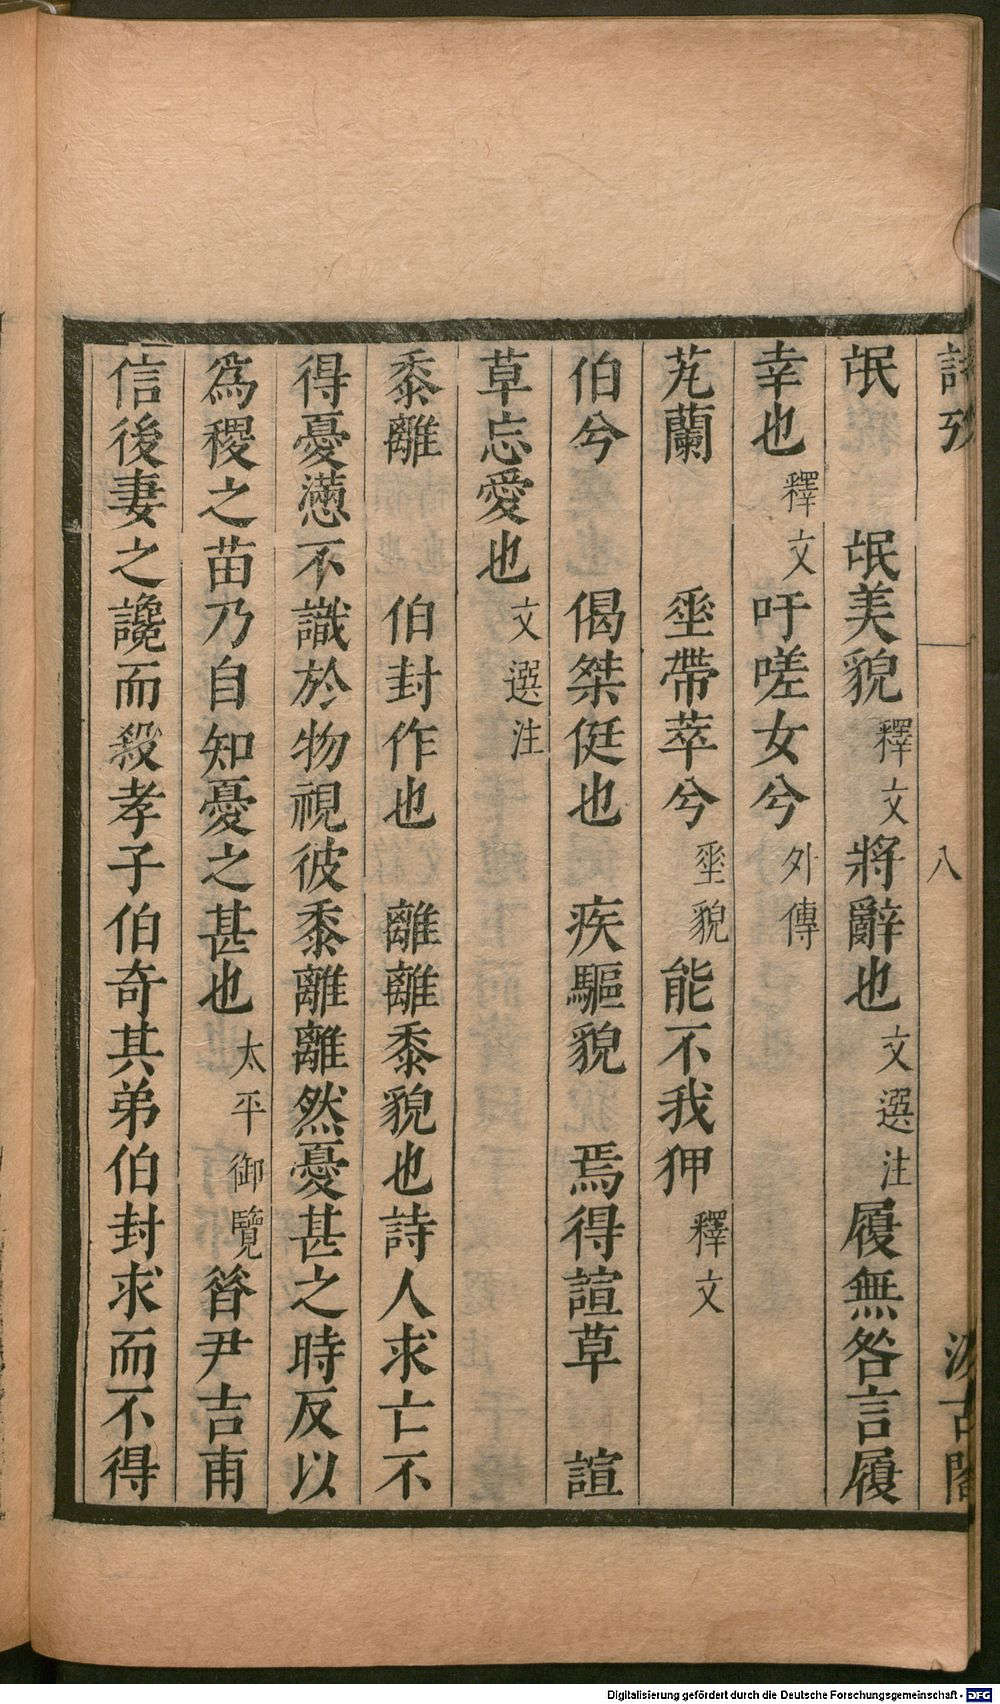 詩攷 八 汲古閣
氓 氓美貌釋文將辭也文選注履無咎言履
幸也釋文吁嗟女兮外傳
芄蘭 垂帶萃兮垂貌能不我狎釋文
伯兮 偈桀侹也 疾驅貌 焉得諠草 諠
草忘愛也文選注
黍離 伯封作也 離離黍貌也詩人求亡不
得憂懣不識於物視彼黍離離然憂甚之時反以
為稷之苗乃自知憂之甚也太平御覽昝尹吉甫
信後妻之讒而殺孝子伯奇其弟伯封求而不得
Digitalisierung gefördert durch die Deutsche Forschungsgemeinschaft - DFG